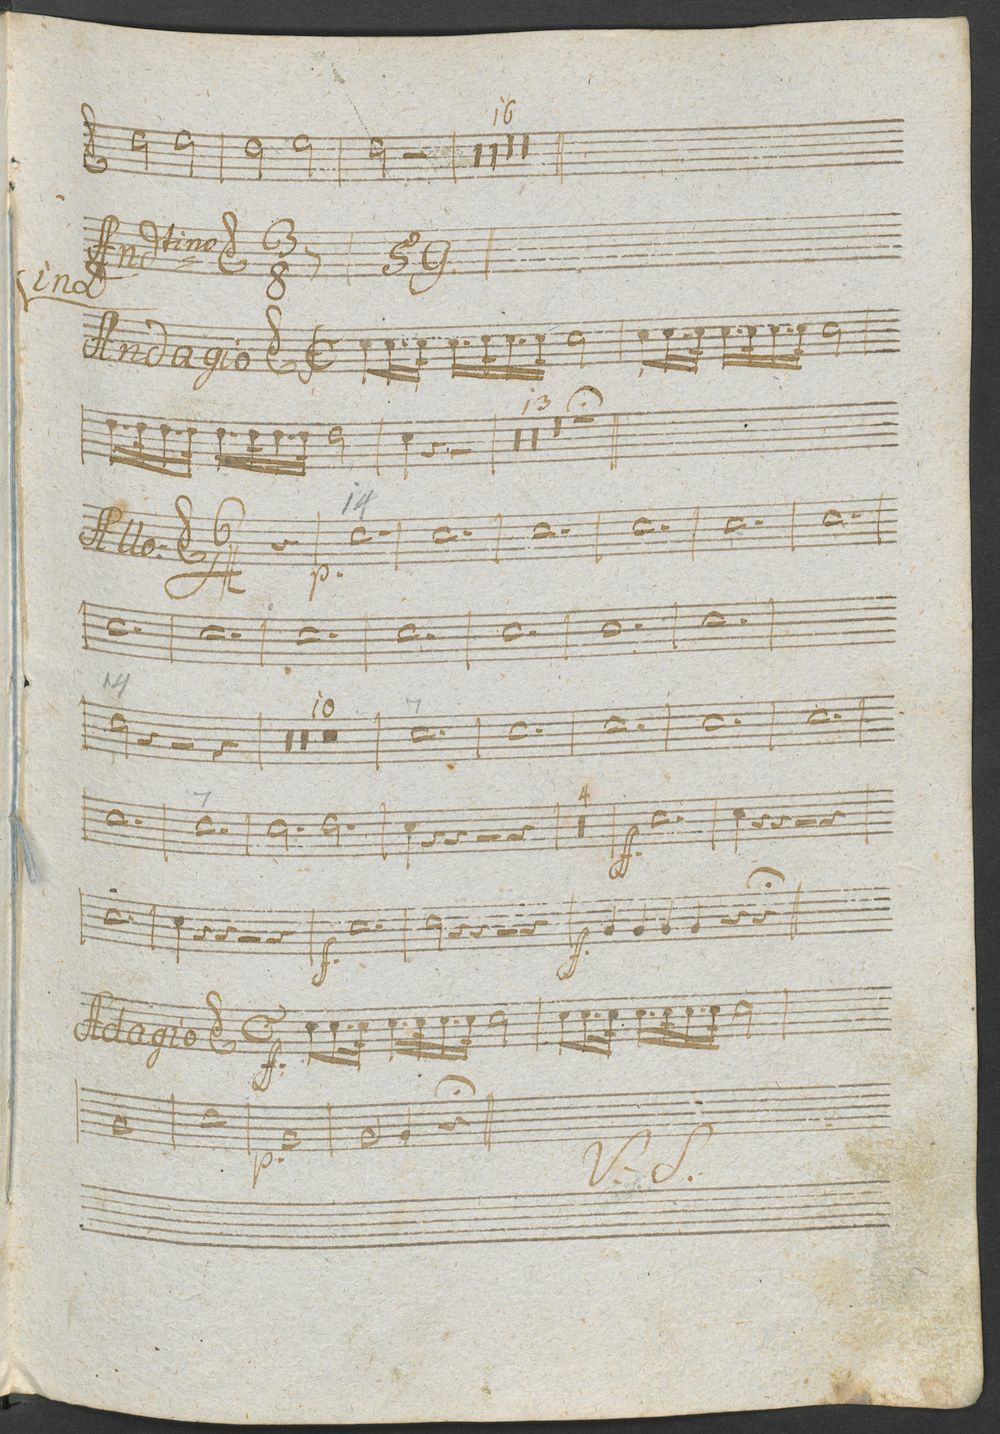 16
Andtino 3 8 59
in D
Andagio
13
Allo. 6 4 14
p.
14 10 7
7 4
ff.
f. ff.
Adagio
ff.
p.
V. S.